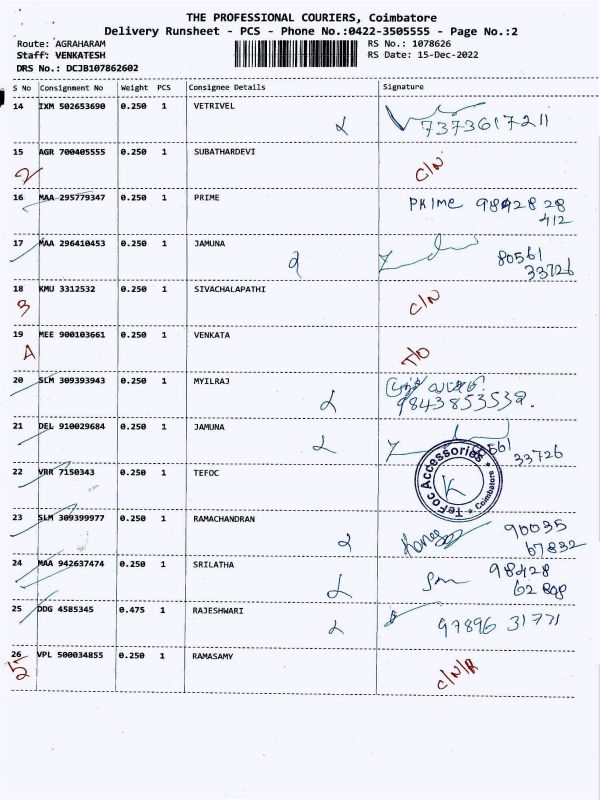 THE PROFESSIONAL COURIERS, Coimbatore
Delivery Runsheet - PCS - Phone No.:0422-3505555 - Page No.:2
Route: AGRAHARAM RS No.: 1078626
Staff: VENKATESH RS Date: 15-Dec-2022
DRS No.: DCJB107862602
S No Consignment No Weight PCS Consignee Details Signature
14 IXM 502653690 0.250 1 VETRIVEL 7373617211
15 AGR 700405555 0.250 1 SUBATHARDEVI C/N
2
16 MAA 295779347 0.250 1 PRIME PRIME 98428 28
412
17 MAA 296410453 0.250 1 JAMUNA 80561
33726
18 KMU 3312532 0.250 1 SIVACHALAPATHI C/N
3
19 MEE 900103661 0.250 1 VENKATA T/O
A
20 SLM 309393943 0.250 1 MYILRAJ
9843853532.
21 DEL 910029684 0.250 1 JAMUNA 561
33726
22 VRR 7150343 0.250 1 TEFOC TeFoc Accessories * Coimbatore *
23 SLM 309399977 0.250 1 RAMACHANDRAN 90035
67832
24 MAA 942637474 0.250 1 SRILATHA 98428
25 DDG 4585345 0.475 1 RAJESHWARI 97896 31771
26 VPL 500034855 0.250 1 RAMASAMY C/N/R
5